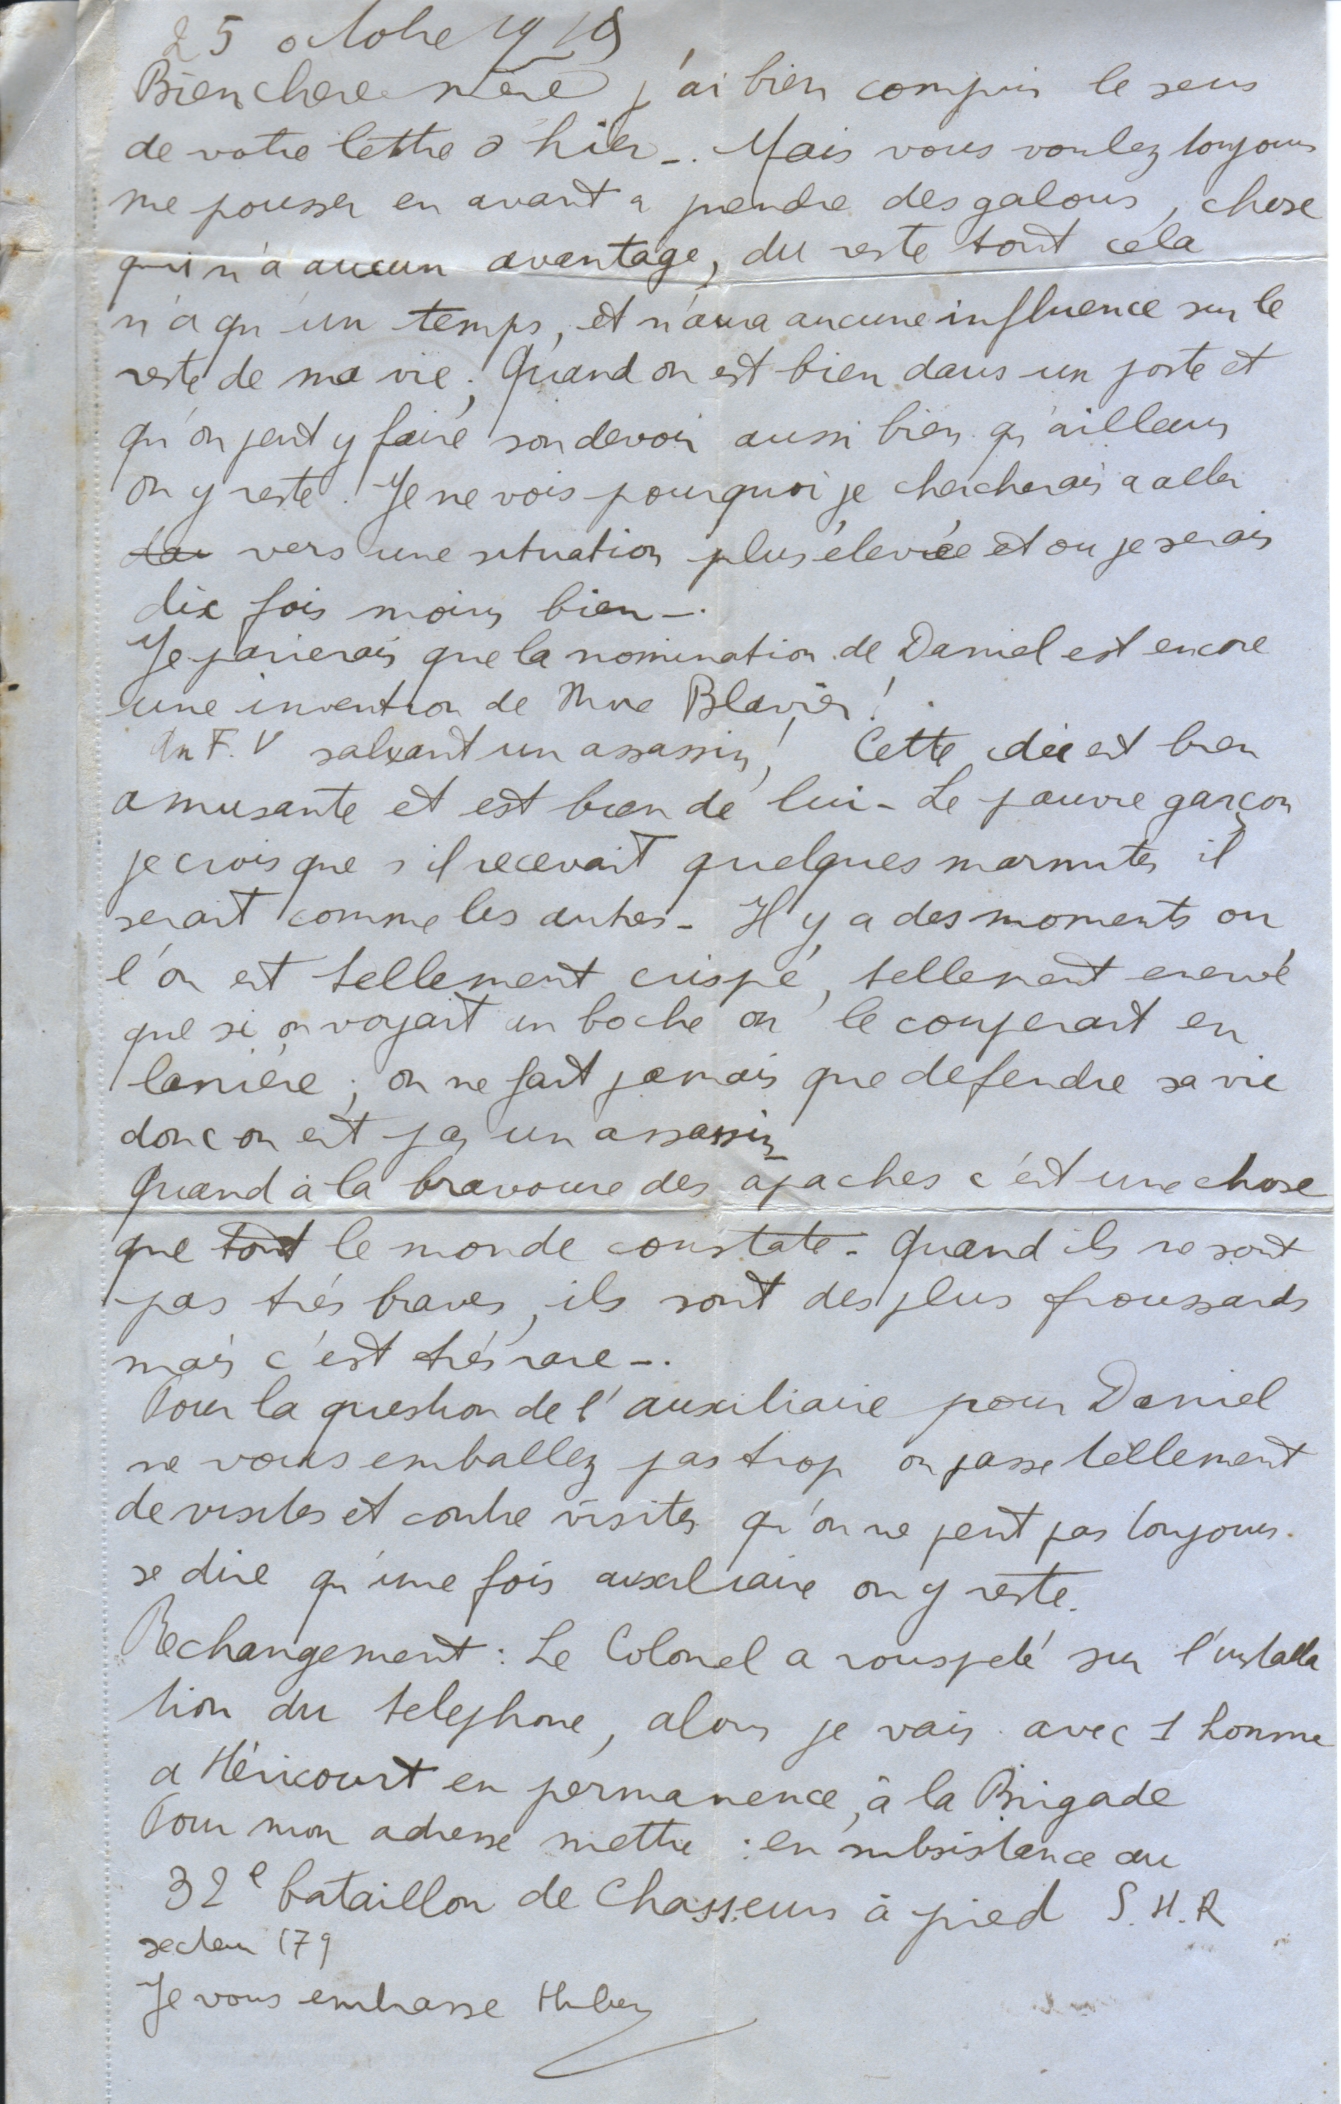 25 octobre 1915
Bien chere mère j'ai bien compris le sens
de votre lettre d'hier -. Mais vous voulez toujours
me pousser en avant a prendre des galons, chose
qui n'a aucun avantage, du reste tout cela
n'a qu'un temps, et n'aura aucune influence sur le
reste de ma vie. Quand on est bien dans un poste et
qu'on peut y faire son devoir aussi bien qu'ailleurs
on y reste. Je ne vois pourquoi je chercherais a aller
vers une situation plus élevée et ou je serais
dix fois moins bien -.
Je parierais que la nomination de Daniel est encore
une invention de Mme Blavier!
Un F. V saluant un assassin! Cette idée est bien
amusante et est bien de lui - Le pauvre garçon
je crois que s'il recevait quelques marmites il
serait comme les autres - Il y a des moments ou
l'on est tellement crispé, tellement enervé
que si on voyait un boche on le couperait en
lanière; on ne fait jamais que defendre sa vie
donc on est pas un assassin
Quand à la bravoure des apaches c'est une chose
que tout le monde constate - Quand ils ne sont
pas très braves, ils sont des plus froussards
mais c'est très rare -.
Pour la question de l'auxiliaire pour Daniel
ne vous emballez pas trop on passe tellement
de visites et contre visites qu'on ne peut pas toujours
se dire qu'une fois auxiliaire on y reste.
Rechangement: Le Colonel a rouspeté sur l'installa
tion du telephone, alors je vais avec 1 homme
a Héricourt en permanence, à la Brigade
Pour mon adresse mettre: en subsistance au
32e bataillon de Chasseurs à pied S.H.R
secteur 179
Je vous embrasse Hubert